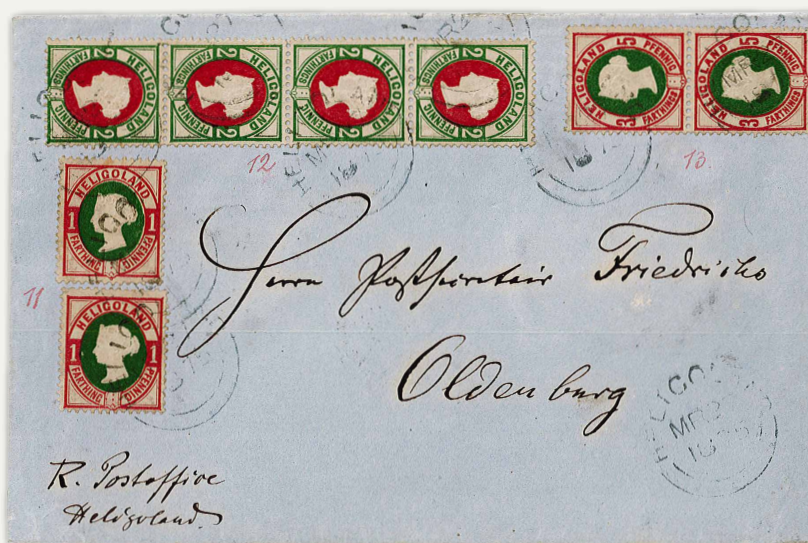 HELIGOLAND
2 2
PFENNIG FARTHINGS
HELIGOLAND
2 2
PFENNIG FARTHINGS
HELIGOLAND
2 2
PFENNIG FARTHINGS
HELIGOLAND
2 2
PFENNIG FARTHINGS
HELIGOLAND
5 PFENNIG
3 FARTHINGS
HELIGOLAND
5 PFENNIG
3 FARTHINGS
12
13.
HELIGOLAND
1 1
FARTHING PFENNIG
11
HELIGOLAND
1 1
FARTHING PFENNIG
Herrn Postsecretair Friedrichs
Oldenburg
HELIGOLAND
MR
R. Postoffice
Heligoland